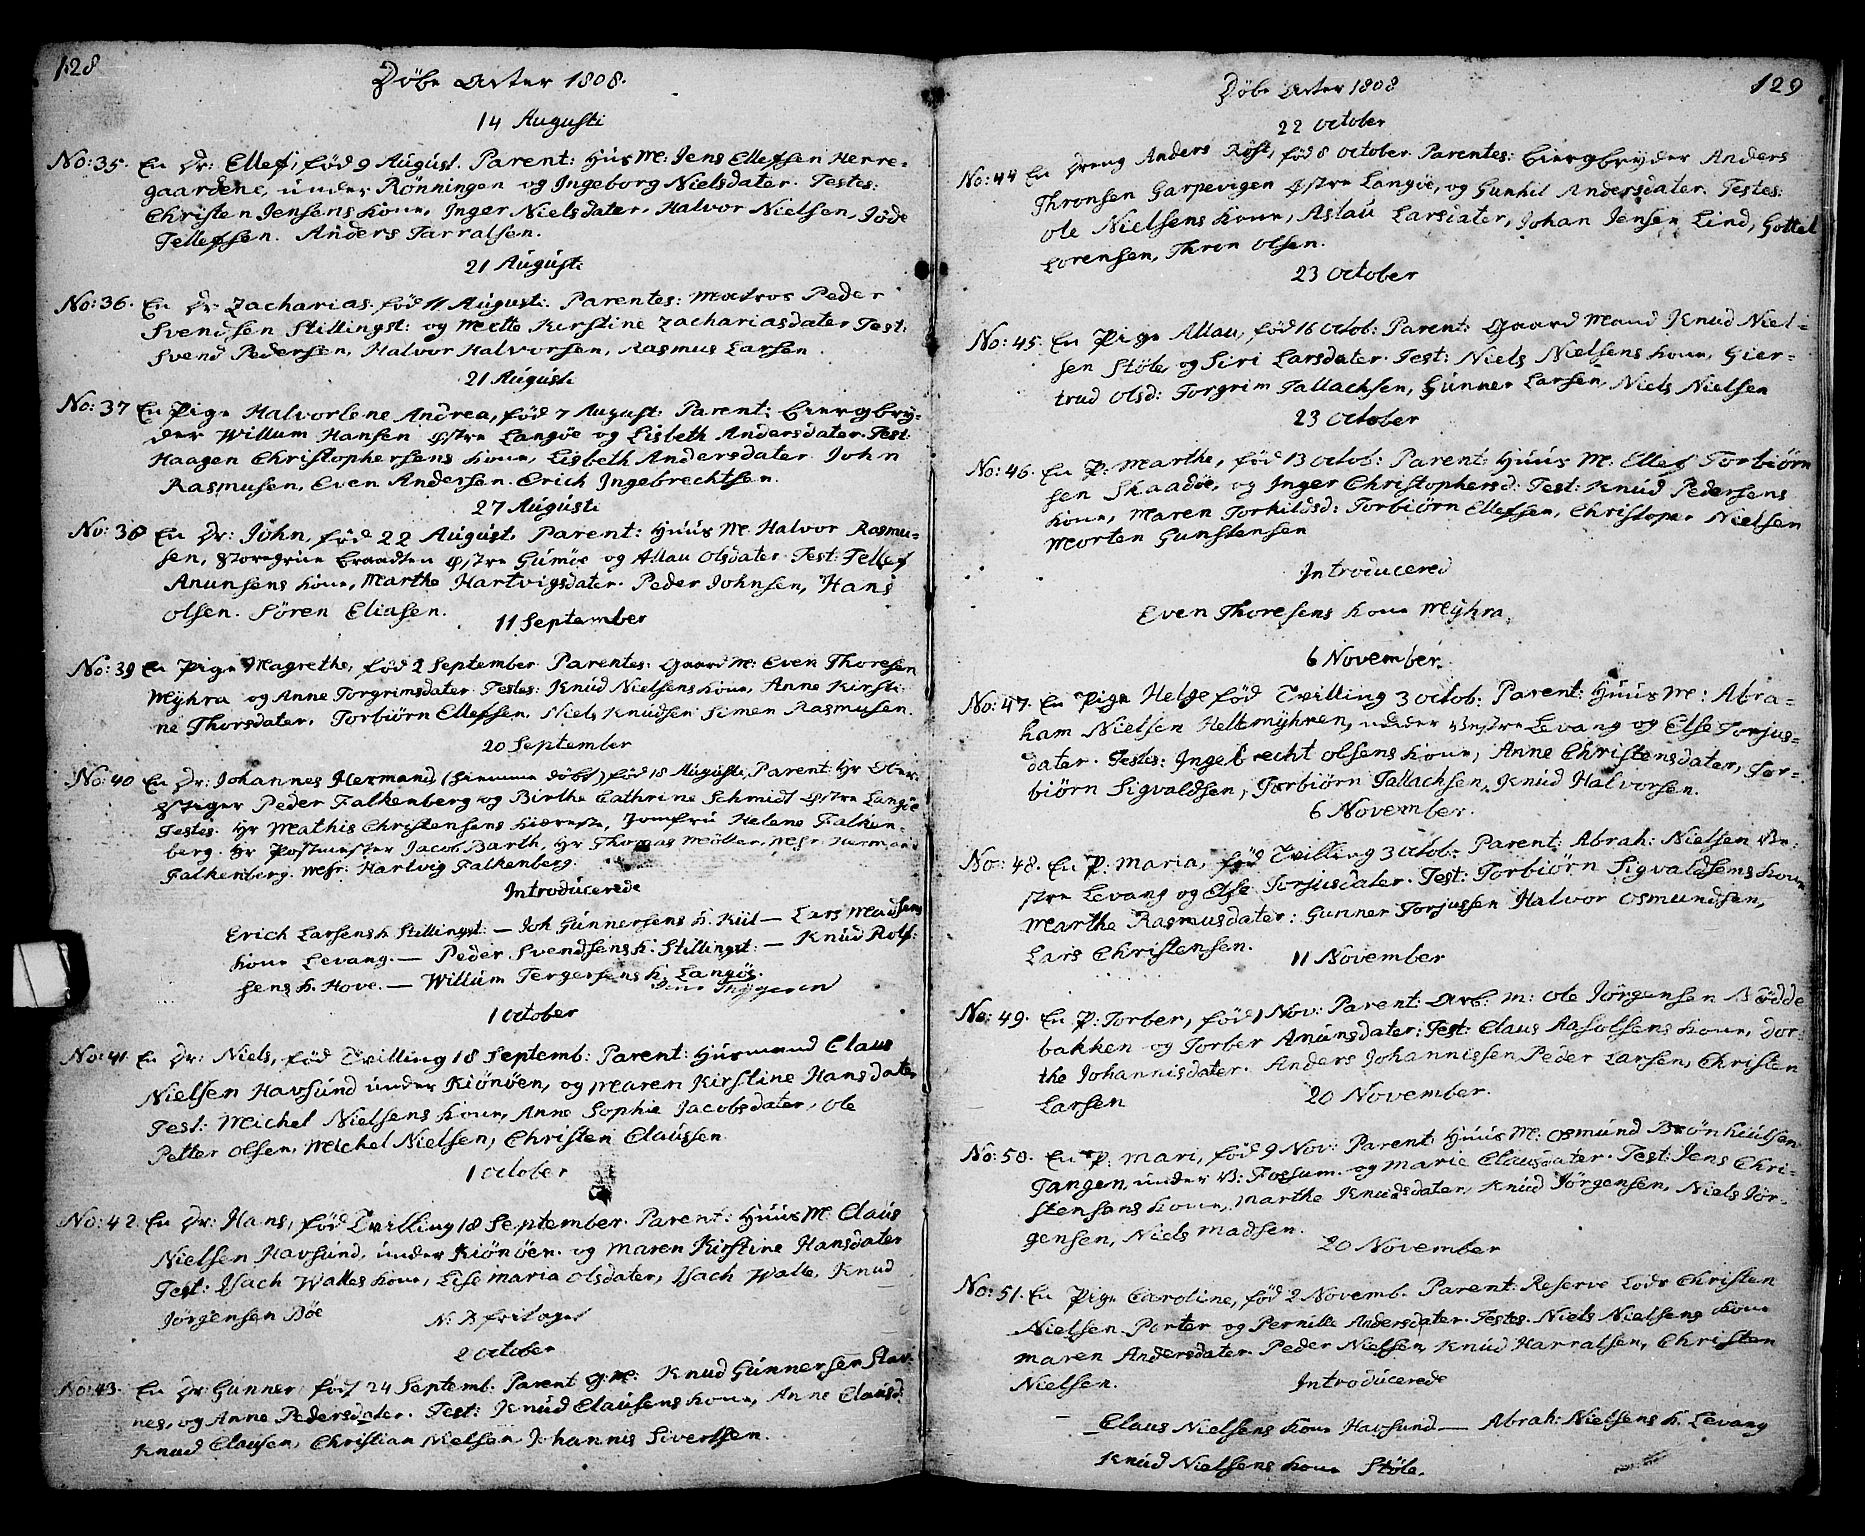 128
Döbe Acter 1808.
14 Augusti
No: 35. En Dr: Ellef, föd 9 August. Parent: Hús M: Jens Ellefsen Herre-
gaardene, únder Rönningen og Ingeborg Nielsdater. Testes:
Christen Jensens kone, Inger Nielsdater, Halvor Nielsen, Jöde
Tellefsen. Anders Tarralsen.
21 Augusti
No: 36. En Dr Zacharias. föd 11 Augusti. Parentes: Matros Peder
Svendsen Stillingst: og Mette Kirstine Zachariasdater Test:
Svend Pedersen, Halvor Halvorsen, Rasmus Larsen.
21 Augusti
No: 37 En Pige Halvorlene Andrea, föd 7 August: Parent: biergbrÿ-
der Willum Hansen östre Langöe og Lisbeth Andersdater. Test:
Haagen Christophersens kone, Lisbeth Andersdater John
Rasmusen, Even Andersen. Erich Ingebrechtsen.
27 Augusti
No: 38 En Dr: John, föd 22 August. Parent: Húús M: Halvor Rasmu-
sen, Storegrúe braadten östre Gúmöe og Allau Olsdater. Test: Tellef
Anunsens kone, Marthe Hartvigsdater. Peder Johnsen, Hans
olsen. Sören Eliasen.
11 September
No: 39 En Pige Magrethe, föd 2 September Parentes: Gaard M: Even Thoresen
Mÿhra og Anne Torgrimsdater. Testes: Knúd Nielsens kone, Anne Kirsti-
ne Thorsdater. Torbiörn Ellefsen, Niels Knúdsen Simen Rasmusen.
20 September
No: 40 En Dr: Johannes Hermand (hiemme döbt) föd 18 Augusti, Parent: Hr Ober-
Stiger Peder Falkenberg og Birthe Cathrine Schmidt östre Langöe
Testes. Hr Mathis Christensens kiereste, Jomfrú Helene Falken-
berg. Hr Postmester Jacob Barth, Hr Thomas Möller, Msr. Hermand
Falkenberg. Msr: Hartvig Falkenberg.
Introdúcerede
Erich Larsens k. Stillingst: — Joh Gúnnersens k. Kiil — Lars Madsens
kone Levang. — Peder Svendsens k: Stillingst: — Knúd Rolf-
sens k. Hove. — Willúm Tergersens k. Langöe.
1 October
No: 41 En Dr: Niels, föd Tvilling 18 Septemb: Parent: Húsmand Claus
Nielsen Havsúnd únder Kiönöen, og Maren Kirstine Hansdater
Test: Michel Nielsens kone, Anne Sophie Jacobsdater, Ole
Petter Olsen, Michel Nielsen, Christen Claússen
1 October
No: 42. En Dr: Hans, föd Tvilling 18 September. Parent: Húús M: Claús
Nielsen Havsúnd, únder Kiönöen. og Maren Kirstine Hansdater
Test: Isach Walles kone, Lise Maria Olsdater, Isach Walle, Knud
Jörgensen Böe
2 October
No: 43. En Dr: Gúnner, föd 24 Septemb. Parent G: M: Knud Gúnnersen Stav-
nes, og Anne Pedersdater. Test: Knúd Claúsens kone, Anne Claúsd:
Knud Clausen, Christian Nielsen Johannis Sivertsen.
129
Döbe Acter 1808
22 October
No: 44 En Dreng Anders Röst, föd 8 October. Parentes: biergbrÿder Anders
Thronsen Garpevigen östre Langöe, og Gunhil Andersdater. Testes:
Ole Nielsens kone, Aslaú Larsdater, Johan Jensen Lind, Gottel
Lorensen, Thron Olsen.
23 October
No: 45. En Pige Allau, föd 16 Octob: Parent: Gaard Mand Knúd Niel-
sen Stöle, og Siri Larsdater. Test: Niels Nielsens kone, Gier-
trud Olsd: Torgrim Tallachsen, Gúnner Larsen, Niels Nielsen
23 October
No: 46. En P: Marthe, föd 13 Octob: Parent: Húús M: Ellef Torbiörn
sen Skaadöe, og Inger Christophersd: Test: Knúd Pedersens
kone, Maren Torkildsd: Torbiörn Ellefsen, Christoper Nielsen
Morten Gunstensen
Introducered
Even Thoresens kone Mÿhra.
6 November.
No: 47. En Pige Helge föd Tvilling 3 Octob: Parent: Húús M: Abra-
ham Nielsen Heltemÿhren, under Vestre Levang og Else Torjus-
dater. Testes: Ingebrecht Olsens kone, Anne Christensdater, Tor-
biörn Sigvaldsen, Torbiörn Tallachsen, Knúd Halvorsen.
6 November.
No: 48. En P: Maria, föd Tvilling 3 Octob. Parent: Abrah: Nielsen Ve-
stre Levang og Else Torjusdater. Test: Torbiörn Sigvaldsens kone
Marthe Rasmusdater: Gunner Torjussen Halvor Osmundsen,
Lars Christensen.
11 November
No: 49. En P: Torber, föd 1 Nov: Parent: Arb: M: Ole Jörgensen Bödde
bakken og Torber Anúnsdater: Test: Claus Aasolsens kone, Dor-
the Johannisdater. Anders Johannissen Peder Larsen, Christen
Larsen
20 November.
No: 50. En P: Mari, föd 9 Nov: Parent: Húús M: Osmúnd Brönkiulsen
Tangen, únder V: Fossum. og Marie Claúsdater. Test: Jens Chri-
stensens kone, Marthe Knudsdater, Knúd Jörgensen, Niels Jör-
gensen, Niels Madsen.
20 November
No: 51. En Pige Caroline, föd 2 Novemb. Parent: Reserve Lods Christen
Nielsen Porter og Pernille Andersdater. Testes. Niels Nielsens kone
Maren Andersdater Peder Nielsen, Knud Harralsen, Christen
Nielsen.
Introdúcerede
Claus Nielsens kone Havsund — Abrah: Nielsens k. Levang
Knúd Nielsens kone Stöle.